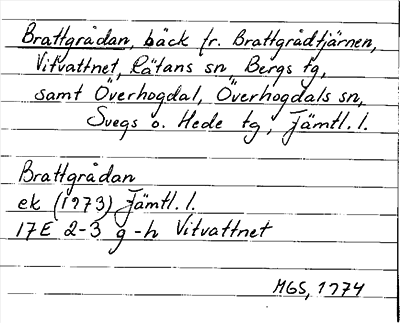 Brattgrådan, bäck fr. Brattgrådtjärnen,
Vitvattnet, Rätans sn, Bergs tg,
samt Överhogdal, Överhogdals sn,
Svegs o. Hede tg, Jämtl. l.
Brattgrådan
ek (1973) Jämtl. l.
17E 2-3 g-h Vitvattnet
MGS, 1974